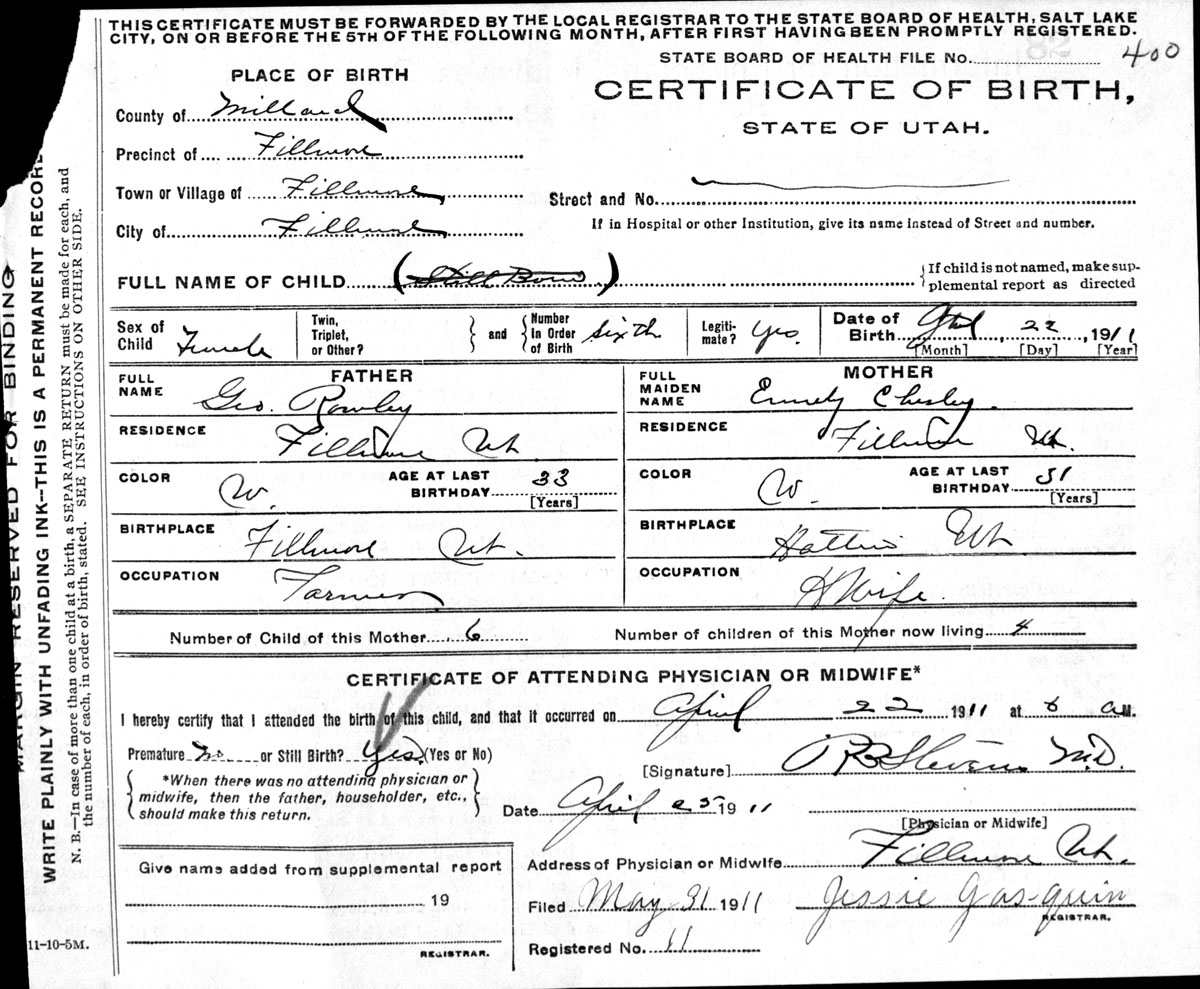 THIS CERTIFICATE MUST BE FORWARDED BY THE LOCAL REGISTRAR TO THE STATE BOARD OF HEALTH, SALT LAKE
CITY, ON OR BEFORE THE 5TH OF THE FOLLOWING MONTH, AFTER FIRST HAVING BEEN PROMPTLY REGISTERED.
STATE BOARD OF HEALTH FILE No. 400
PLACE OF BIRTH
CERTIFICATE OF BIRTH,
STATE OF UTAH.
County of Millard
Precinct of Fillmore
Town or Village of Fillmore
Street and No.
City of Fillmore
If in Hospital or other Institution, give its name instead of Street and number.
FULL NAME OF CHILD (Still Born)
{If child is not named, make sup-
plemental report as directed
Sex of Child Female
Twin, Triplet, or Other? } and { Number In Order of Birth sixth
Legiti-mate? Yes.
Date of Birth April 22, 1911
[Month] [Day] [Year]
FATHER
FULL NAME Geo. Rowley
RESIDENCE Fillmore Ut.
COLOR W. AGE AT LAST BIRTHDAY 33
[Years]
BIRTHPLACE Fillmore Ut.
OCCUPATION Farmer
MOTHER
FULL MAIDEN NAME Chesley.
RESIDENCE Fillmore Ut.
COLOR W. AGE AT LAST BIRTHDAY 31
[Years]
BIRTHPLACE Ut
OCCUPATION HWife
Number of Child of this Mother 6 Number of children of this Mother now living 4
CERTIFICATE OF ATTENDING PHYSICIAN OR MIDWIFE*
I hereby certify that I attended the birth of this child, and that it occurred on April 22 1911 at 6 a.M.
Premature No or Still Birth? Yes (Yes or No)
[Signature] Stevens M.D.
*When there was no attending physician or
midwife, then the father, householder, etc.,
should make this return.
Date April 25 1911
[Physician or Midwife]
Address of Physician or Midwife Fillmore Ut.
Give name added from supplemental report
19
REGISTRAR.
Filed May 31 1911 Jessie Gasquin
REGISTRAR.
Registered No. 11
11-10-5M.
MARGIN RESERVED FOR BINDING
WRITE PLAINLY WITH UNFADING INK--THIS IS A PERMANENT RECORD
N. B.--In case of more than one child at a birth, a SEPARATE RETURN must be made for each, and
the number of each, in order of birth, stated. SEE INSTRUCTIONS ON OTHER SIDE.